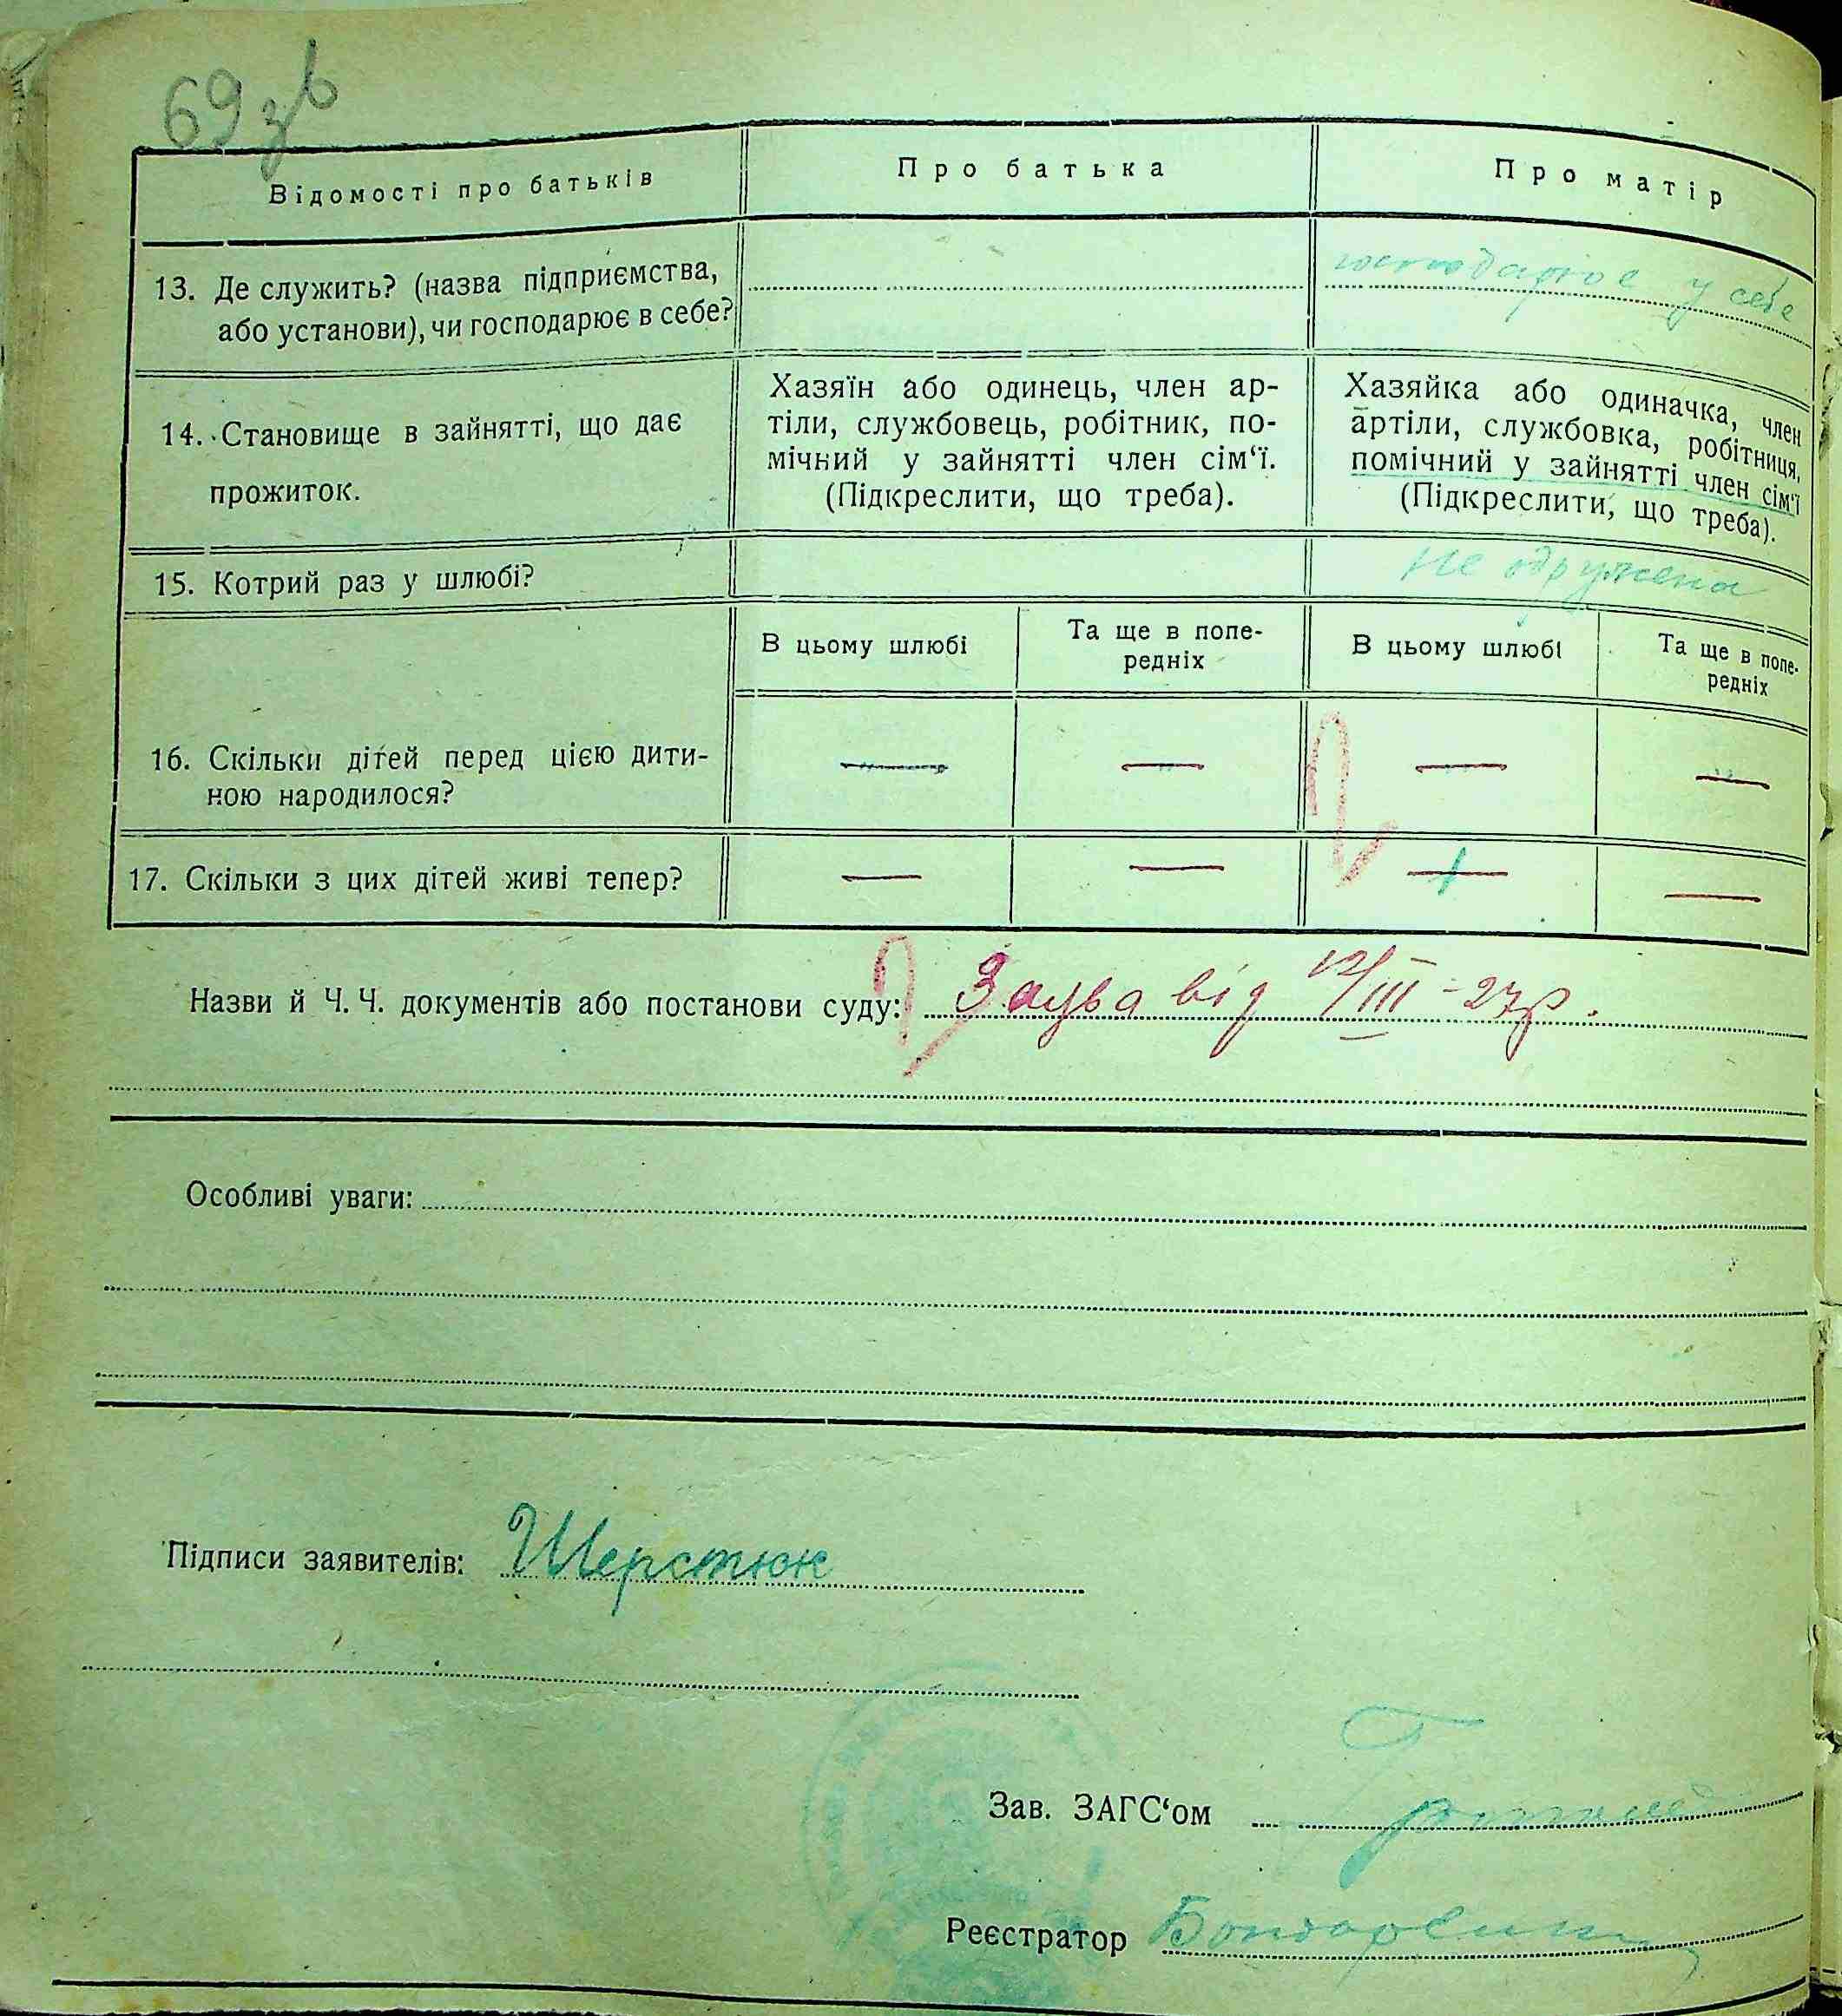 69 зв
Відомості про батьків
Про батька
Про матір
13. Де служить? (назва підприємства,
або установи), чи господарює в себе?
господарює у себе
14. Становище в зайнятті, що дає
прожиток.
Хазяїн або одинець, член ар-
тіли, службовець, робітник, по-
мічний у зайнятті член сім‘ї.
(Підкреслити, що треба).
Хазяйка або одиначка, член
артіли, службовка, робітниця,
помічний у зайнятті член сім‘ї
(Підкреслити, що треба).
15. Котрий раз у шлюбі?
Не одружена
В цьому шлюбі
Та ще в попе-
редніх
В цьому шлюбі
Та ще в попе-
редніх
16. Скільки дітей перед цією дити-
ною народилося?
— — — —
17. Скільки з цих дітей живі тепер?
— — — —
Назви й Ч. Ч. документів або постанови суду: Заява від 12/III-27р.
Особливі уваги:
Підписи заявителів: Шерстюк
Зав. ЗАГС‘ом
Реєстратор